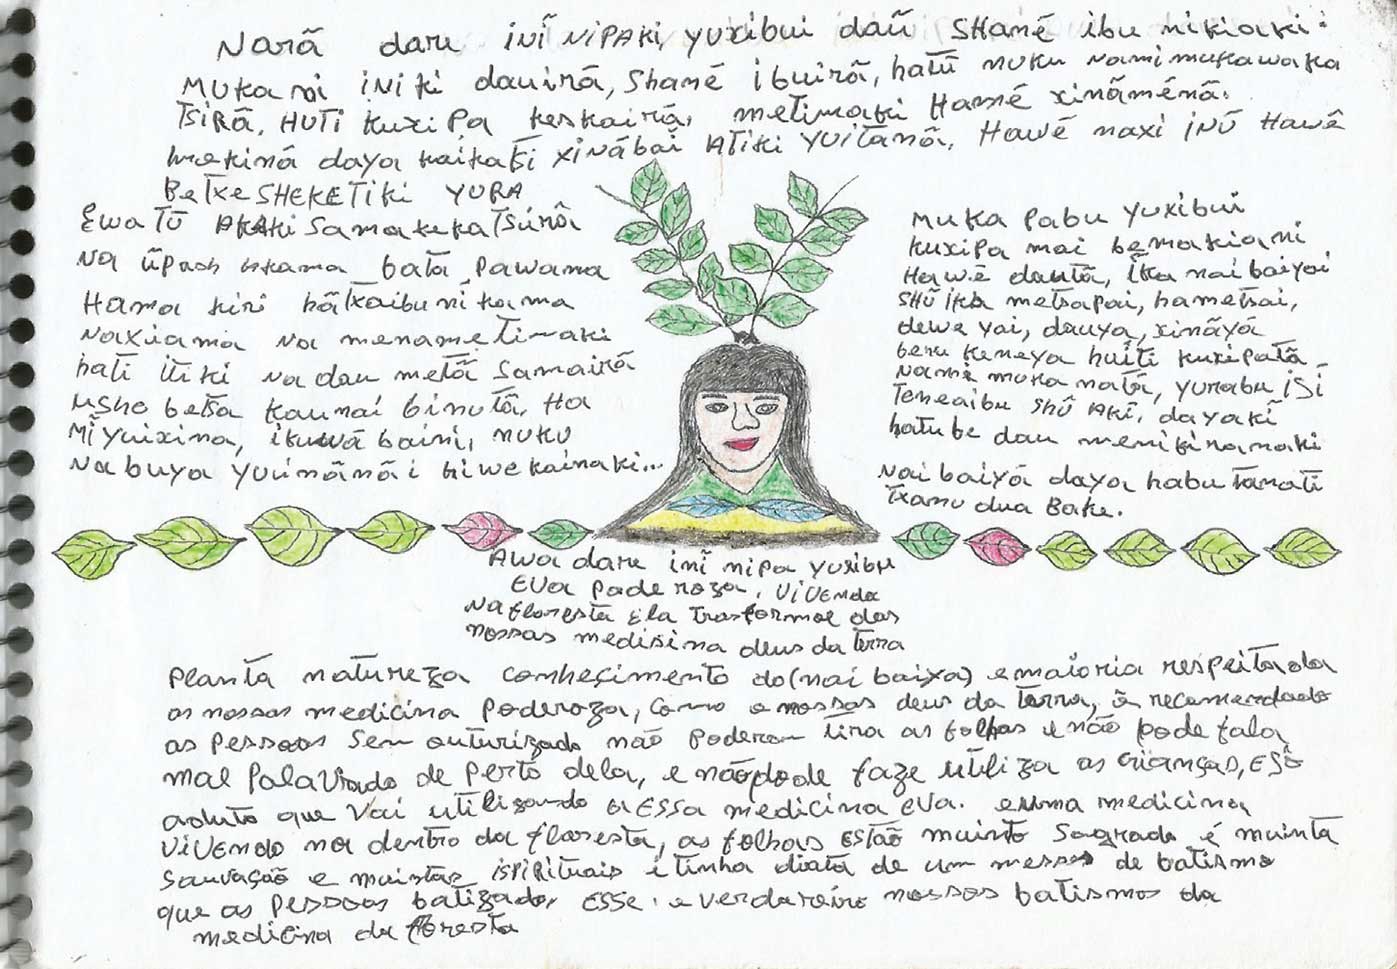 Narã daru inĩ nipaki, yuxibui daũ Shané ibu nikiaki:
Mukani initi dauirã, Shané ibuirã, hatũ nuku namimukawaka
tsirã, Huti kuxipa keskairã, metimaki Hamé xinãmênã.
mekiná daya kaikatĩ xinãbai Atiki yuitanã, Hawẽ naxi inũ Hawẽ
Betxe SHEKETIKI YURA
Ewatũ AKAKi samakekatsirãi
na ũpash iskama bata pawama
Hama kiri hãtxaibu nikama
naxiama na menametimaki
hati itiki na dau metã samairã
ushe betsa kaunai binutã, Ha
Mĩ yuixina, ikuwã baini, nuku
Na buya yuinãnãi hiwe kainaki...
Muka Pabu yuxibui
kuxipa mai bemakiani
Hawẽ dautã, ĩka nai baiyai
SHũ ika metsapai, hametsai,
dewe yai, dauya, xinãyã
beru keneya huĩti kuxipatã
Namẽ muka natã, yurabu isĩ
Teneaibu shũ Aki, dayakĩ
hatu be dau menikinanaki
Nai baiyã daya habu tanati
Txanu dua Bake.
Awa daru inĩ nipa yuxibu
EVa Paderoza, ViVENda
Na floresta Ela Trasformol das
nossas medisina deus da terra
Planta natureza conheçimento do (nai baixa) e maioria respeitada
as nossas medicina Poderoza, como e nossos deus da terra, ã recomendado
as pessoas sem outurizado não poderam tira as folhas e não pode fala
mal Palavrado de perto dela, e não pode faze utiliza as crianças, Esõ
aduto que vai utilizando a ESSa medicina EVa. e uma medicina
ViVENdo na dentro da floresta, as folhas Estão muinto Sagrado é muinta
sauvação e muintas ispirituais i tinha diata de um messes de batismo
que as pessoas batizado, ESSE. e verdareiro nossos batismos da
medicina da floresta